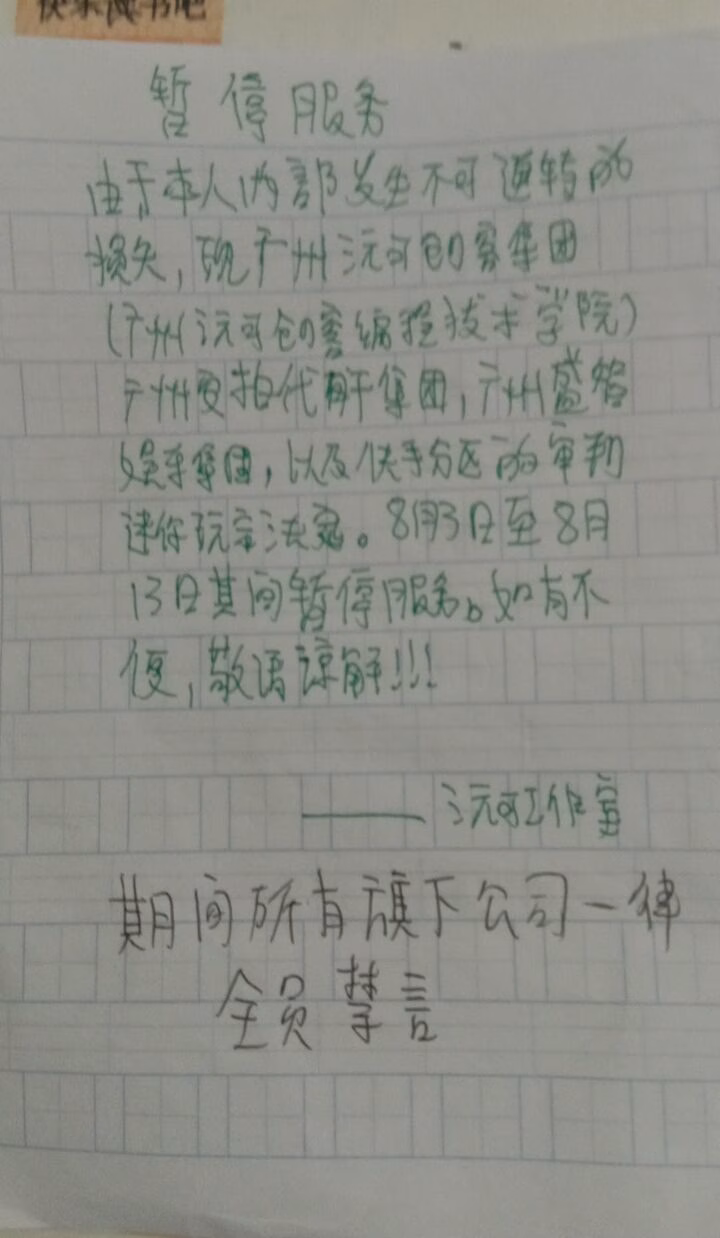 快乐读书吧
暂停服务
由于本人内部发生不可逆转的
损失,现广州沅可创客集团
(广州沅可创客编程技术学院)
广州安拍代肝集团,广州盛焰
娱乐集团,以及快手分区的审判
迷你玩家决定。8月3日至8月
13日其间暂停服务。如有不
便,敬请谅解!!!
——沅可工作室
期间所有旗下公司一律
全员禁言